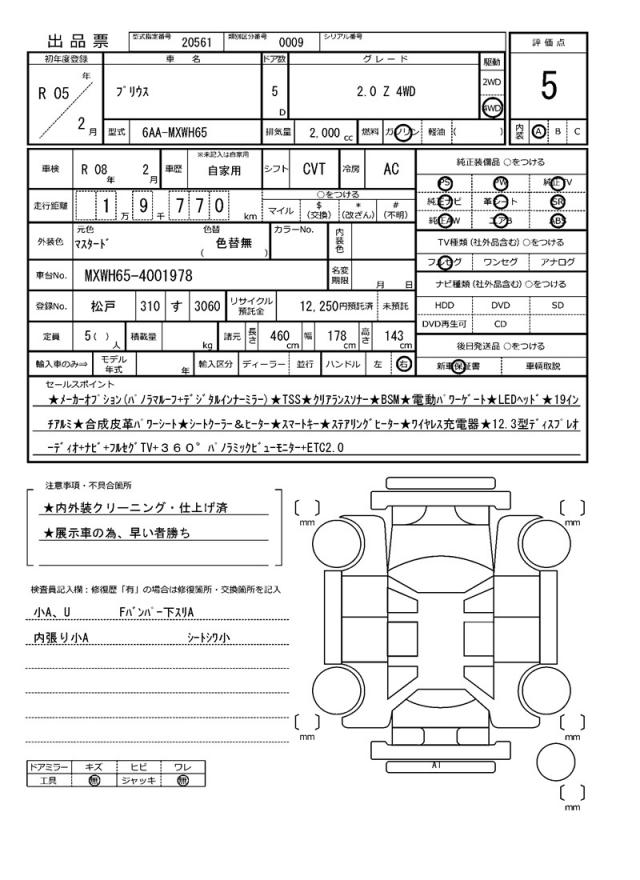 出品票 型式指定番号 20561 類別区分番号 0009 シリアル番号
評価点
5
内装 A B C
初年度登録 車名 ドア数 グレード 駆動
R 05 年 2 月 ﾌﾟﾘｳｽ 5 D 2.0 Z 4WD 2WD 4WD
型式 6AA-MXWH65 排気量 2,000 cc 燃料 ガソリン 軽油 ( )
車検 R 08 年 2 月 車歴 ※未記入は自家用 自家用 シフト CVT 冷房 AC
走行距離 1 万 9 千 7 7 0 km
○をつける
マイル $ (交換) * (改ざん) # (不明)
外装色 元色 ﾏｽﾀｰﾄﾞ 色替 ( 色替無 ) カラーNo. 内装色
車台No. MXWH65-4001978 名変期限 月 日
登録No. 松戸 310 す 3060 リサイクル預託金 12,250円預託済 未預託
定員 5( ) 人 積載量 kg 諸元 長さ 460 cm 幅 178 cm 高さ 143 cm
輸入車のみ⇒ モデル年式 年 輸入区分 ディーラー 並行 ハンドル 左 右
純正装備品 ○をつける
PS PW 純正TV
純正ナビ 革シート SR
純正AW エアB ABS
TV種類 (社外品含む) ○をつける
フルセグ ワンセグ アナログ
ナビ種類 (社外品含む) ○をつける
HDD DVD SD
DVD再生可 CD
後日発送品 ○をつける
新車保証書 車輌取説
セールスポイント
★ﾒｰｶｰｵﾌﾟｼｮﾝ(ﾊﾟﾉﾗﾏﾙｰﾌ+ﾃﾞｼﾞﾀﾙｲﾝﾅｰﾐﾗｰ)★TSS★ｸﾘｱﾗﾝｽｿﾅｰ★BSM★電動ﾊﾟﾜｰｹﾞｰﾄ★LEDﾍｯﾄﾞ★19ｲﾝ
ﾁｱﾙﾐ★合成皮革ﾊﾟﾜｰｼｰﾄ★ｼｰﾄｸｰﾗｰ&ﾋｰﾀｰ★ｽﾏｰﾄｷｰ★ｽﾃｱﾘﾝｸﾞﾋｰﾀｰ★ﾜｲﾔﾚｽ充電器★12.3型ﾃﾞｨｽﾌﾟﾚｲｵ
ｰﾃﾞｨｵ+ﾅﾋﾞ+ﾌﾙｾｸﾞTV+３６０°ﾊﾟﾉﾗﾐｯｸﾋﾞｭｰﾓﾆﾀｰ+ETC2.0
注意事項・不具合箇所
★内外装クリーニング・仕上げ済
★展示車の為、早い者勝ち
検査員記入欄：修復歴「有」の場合は修復箇所・交換箇所を記入
小A、U Fﾊﾞﾝﾊﾟｰ下ｽﾘA
内張り小A ｼｰﾄｼﾜ小
ドアミラー キズ ヒビ ワレ
工具 無 ジャッキ 無
[ ] mm
[ ] mm
[ ] mm
[ ] mm
A1
[ ] mm